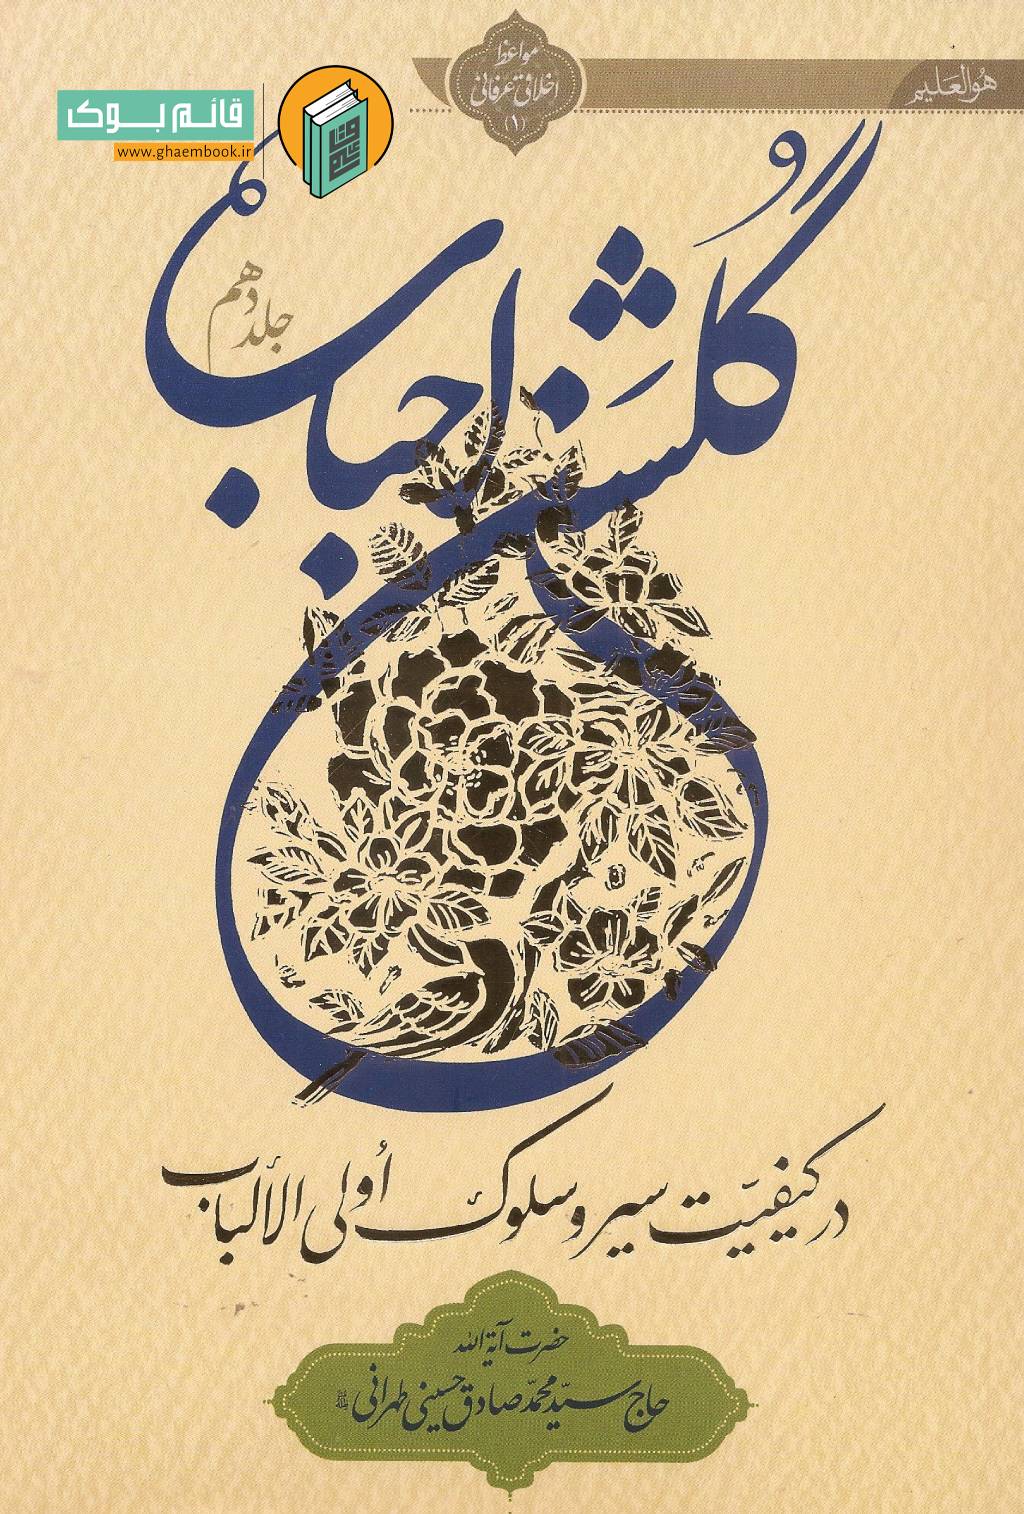 هو العلیم
مواعظ
اخلاقی عرفانی
(۱)
قائم بوک
www.ghaembook.ir
گُلشَن احباب
جلد دهم
در کیفیّت سیر و سلوک اُولی الألباب
حضرت آیة الله
حاج سیّد محمّد صادق حسینی طهرانی